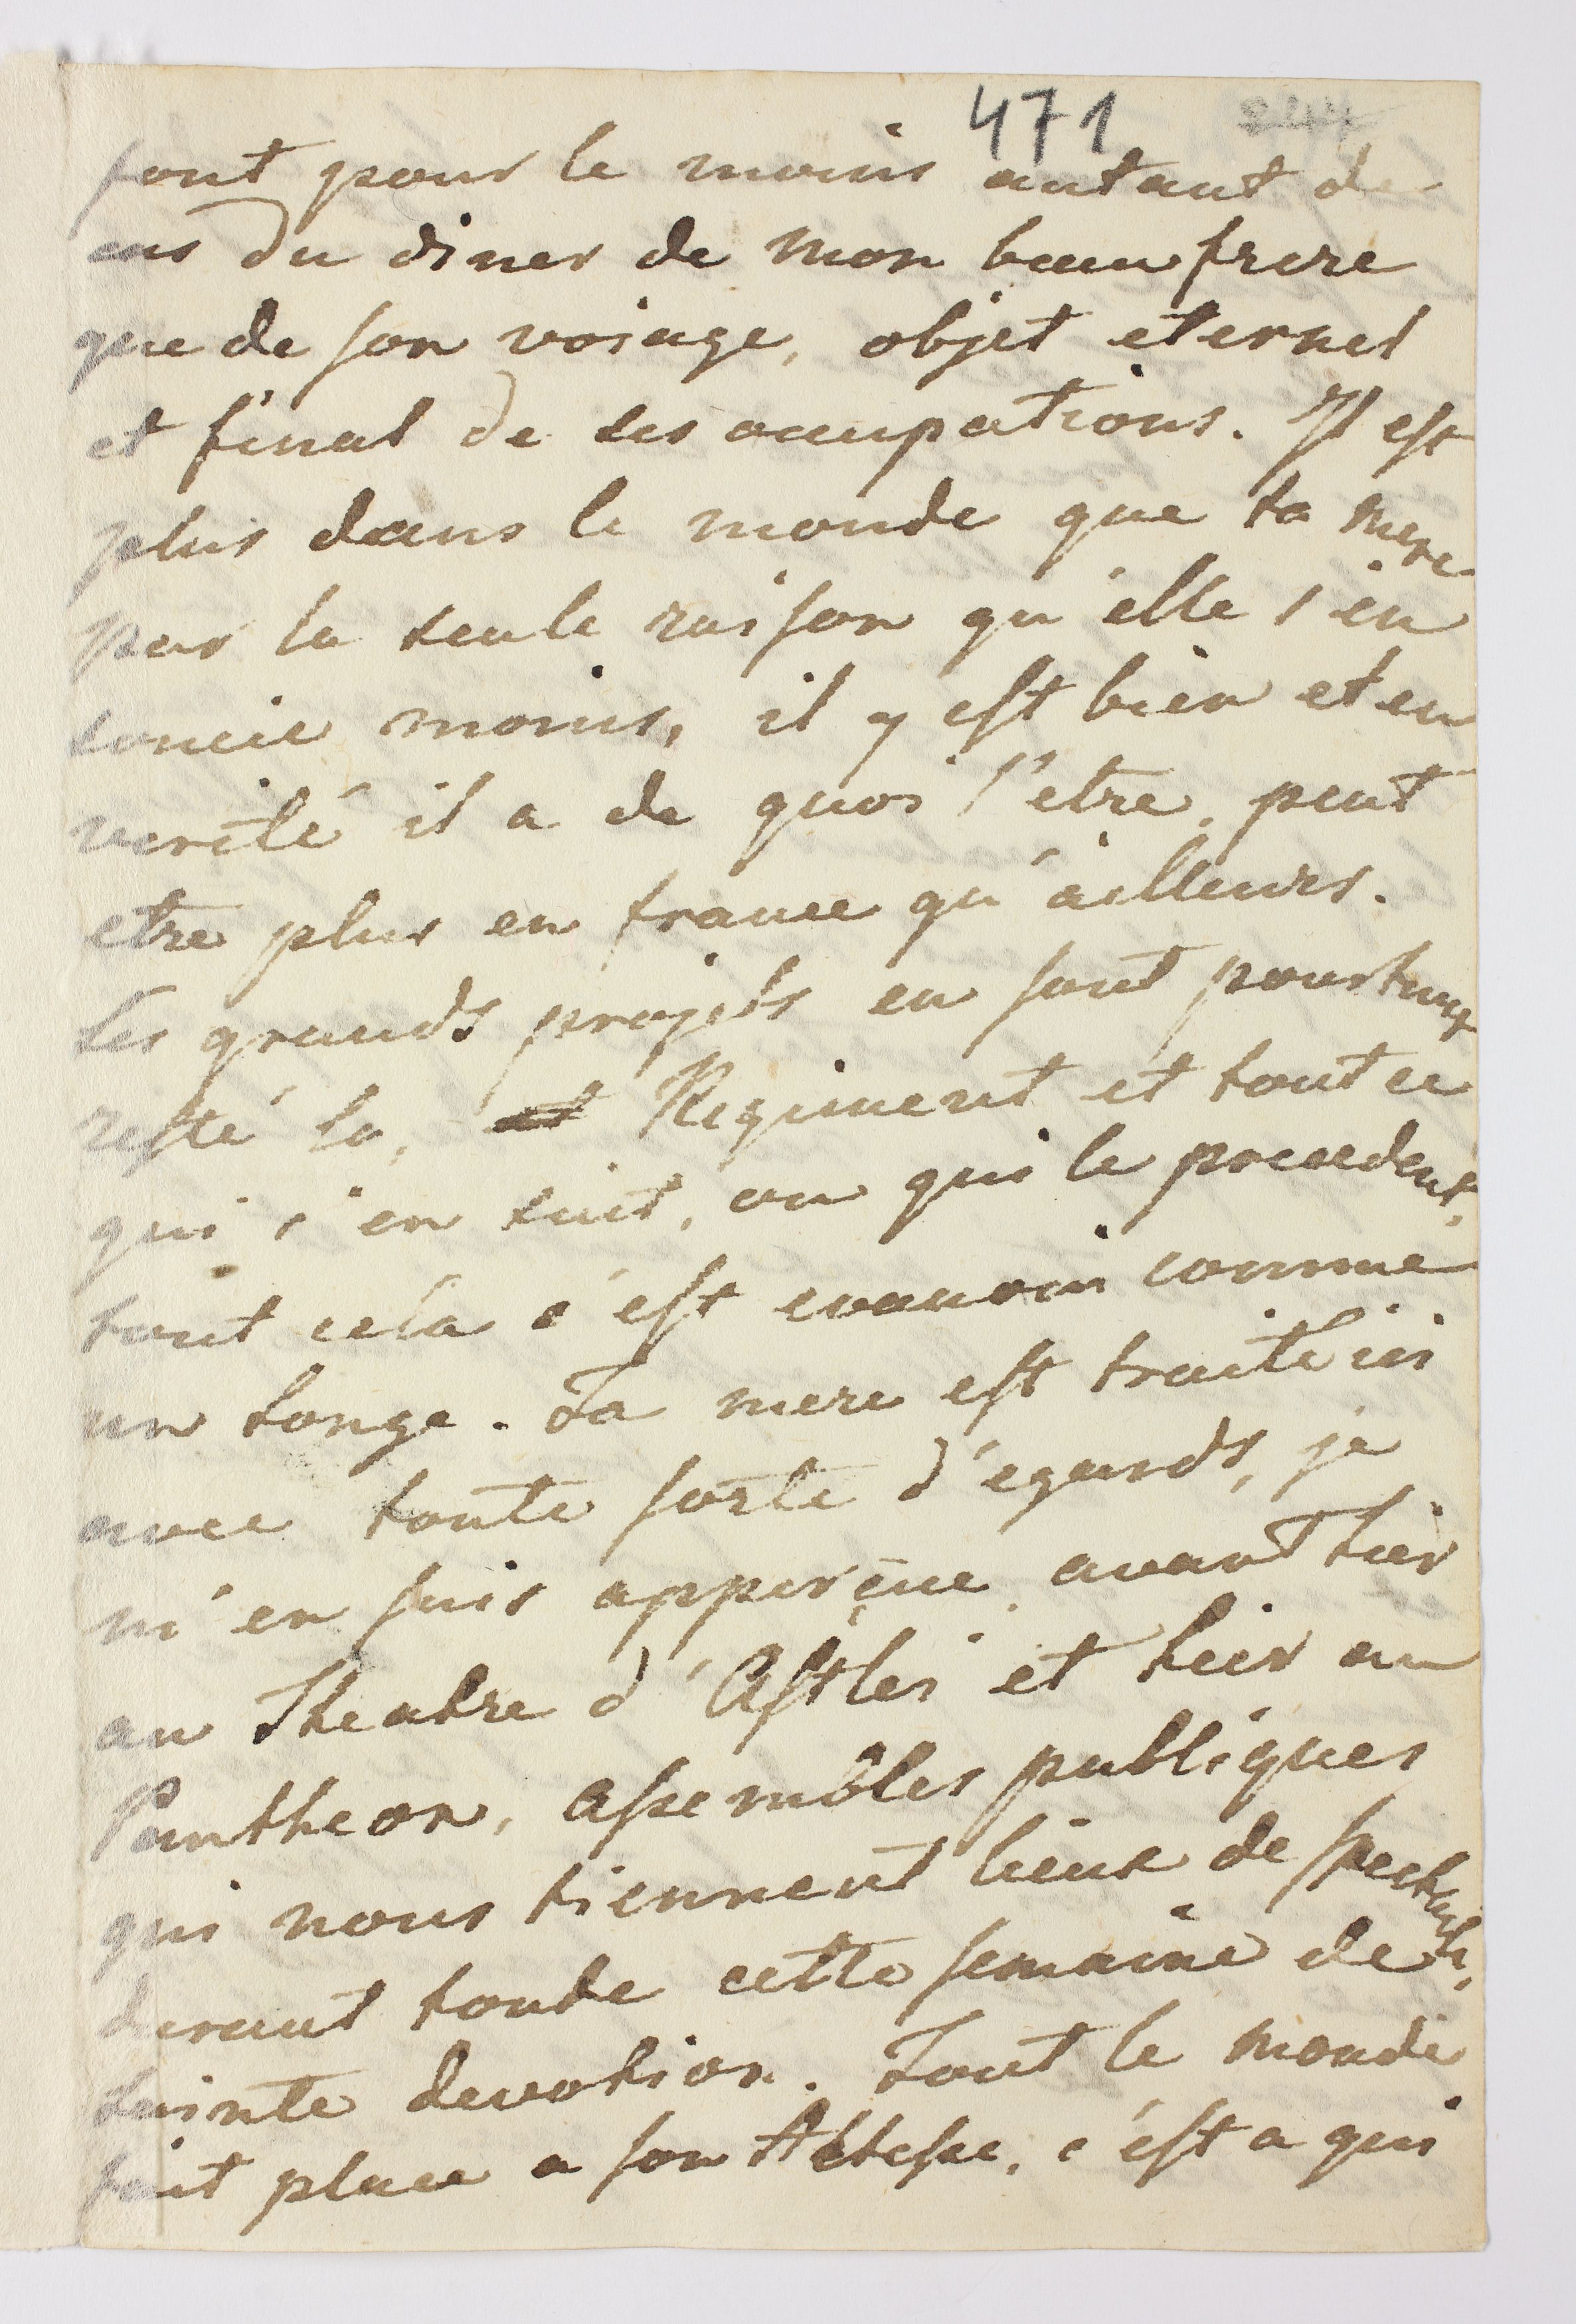 471 244
font pour le moins autant de
cas du diner de mon beaufrere
que de son voiage, objet eternel
et final de ses occupations. Il est
plus dans le monde que ta mere
par la seule raison qu'elle s'en
soucie moins, il y est bien et en
verité il a de quoi l'etre, peut
etre plus en france qu'ailleurs.
Ses grands projets en sont pourtant
resté la, et Regiment et tout ce
qui s'en suit, ou qui le precedent,
tout cela s'est evanoui comme
un songe. Ta mere est traité ici
avec toute sorte d'egards, je
m'en suis apperçue avant hier
au Theatre d'Astlei et hier au
Pantheon, assemblés publiques
qui nous tiennent lieux de spectacle,
durant toute cette semaine de
sainte devotion. Tout le monde
fait place a son Altesse, c'est a qui